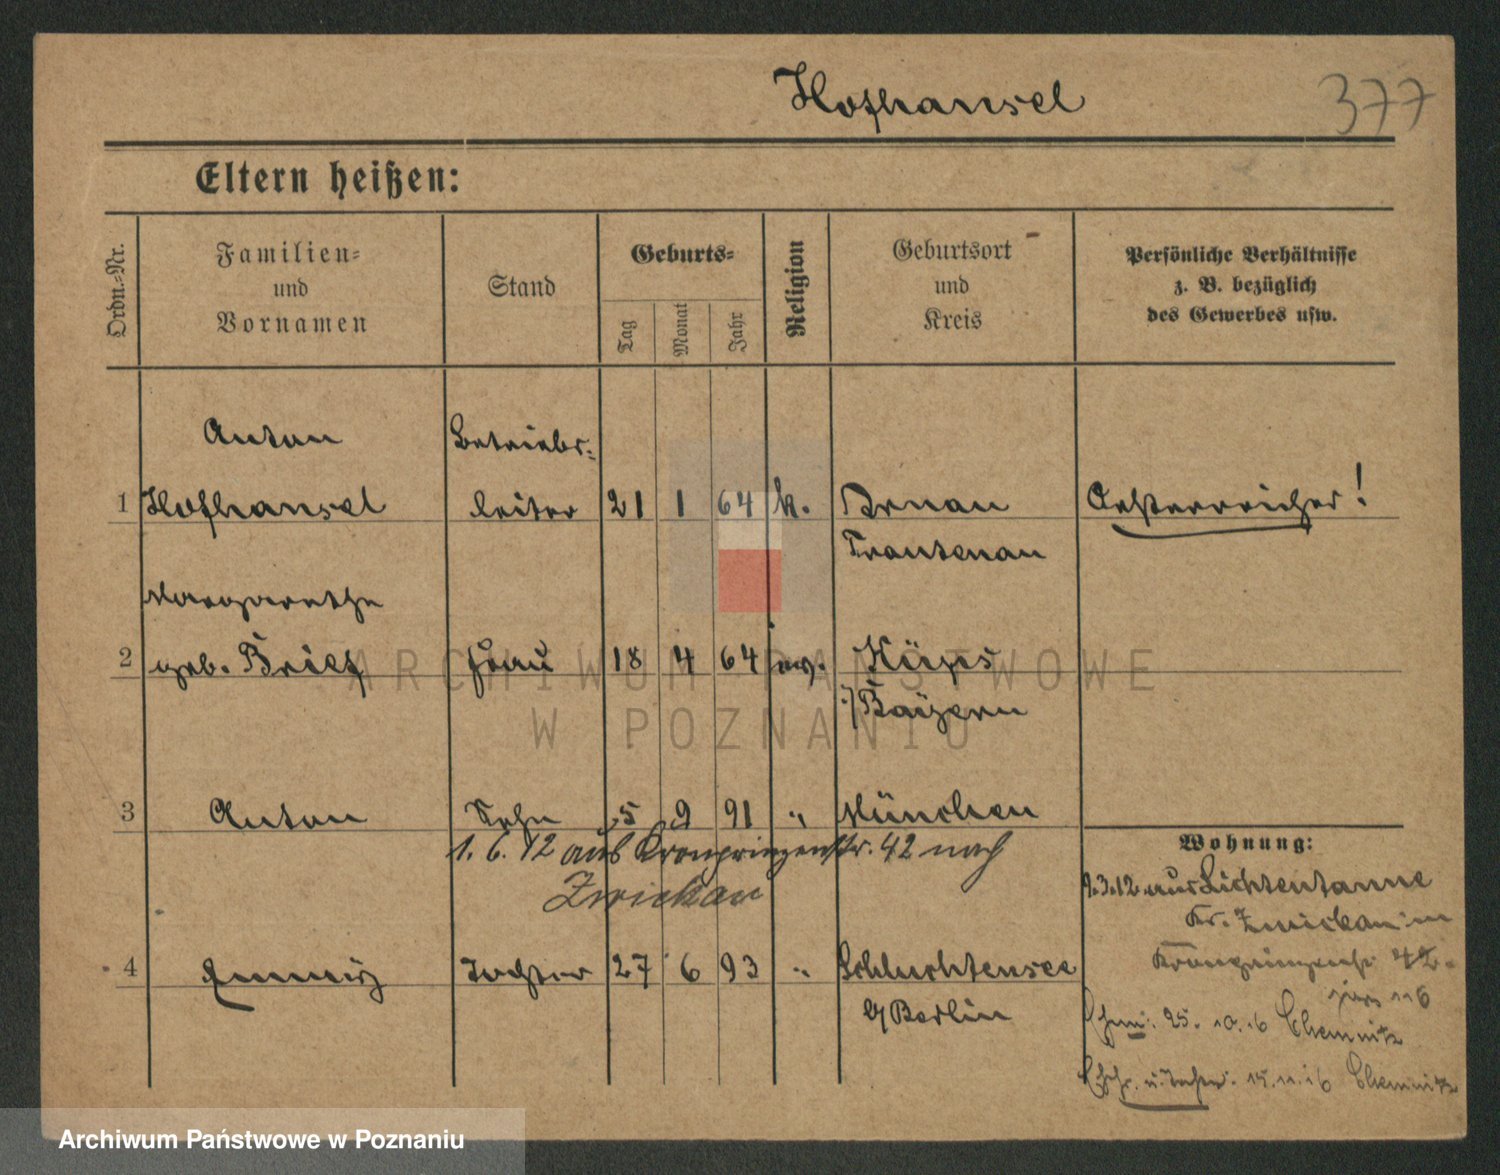 Hofhansel
377
Eltern heißen:
Ordn.-Nr.
Familien-
und
Vornamen
Stand
Geburts-
Tag
Monat
Jahr
Religion
Geburtsort
und
Kreis
Persönliche Verhältnisse
z. B. bezüglich
des Gewerbes usw.
Anton Betriebs-
1 Hofhansel leiter 21 1 64 k. Arnau Oesterreicher!
Trautenau
Margarethe
2 geb. Frau 18 4 64 ev.
i/Bayern
3 Anton Sohn 5 9 91 " München
1. 6. 12 aus Kronprinzenstr. 42 nach
Zwickau
Wohnung:
9.3.12 aus Lichtentanne
Kr. Zwickau in
Kronprinzenstr 42.
4 Emmy Tochter 27 6 93 " Schlachtensee
b/ Berlin
Ehem: 25. 10. 16 Chemnitz
Ehefr. u. Tochter: 15.11.16 Chemnitz
ARCHIWUM PAŃSTWOWE
W POZNANIU
Archiwum Państwowe w Poznaniu